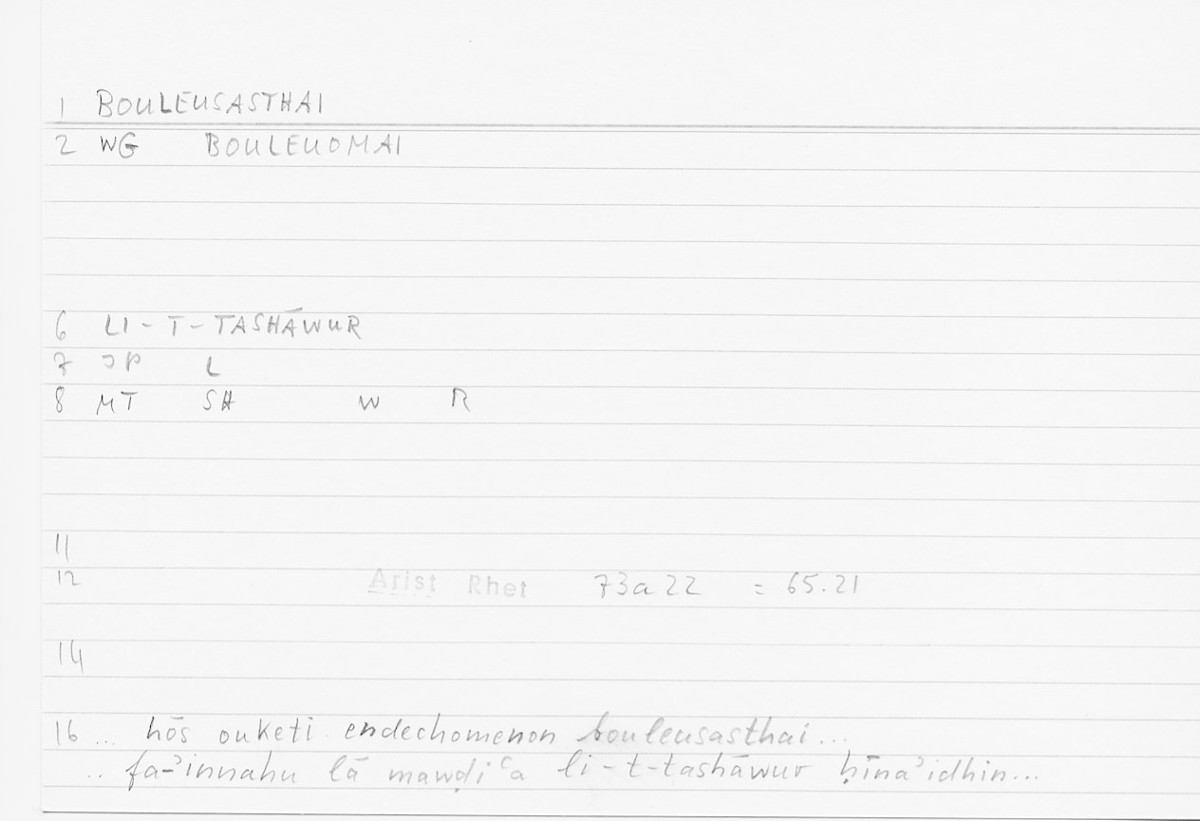 1 BOULEUSASTHAI
2 WG BOULEUOMAI
6 LI-T-TASHĀWUR
7 JP L
8 MT SH W R
11
12 Arist Rhet 73a22 = 65.21
14
16 ... hōs ouketi endechomenon bouleusasthai...
.. fa-ʾinnahu lā mawḍiʿa li-t-tashāwur ḥīnaʾidhin...